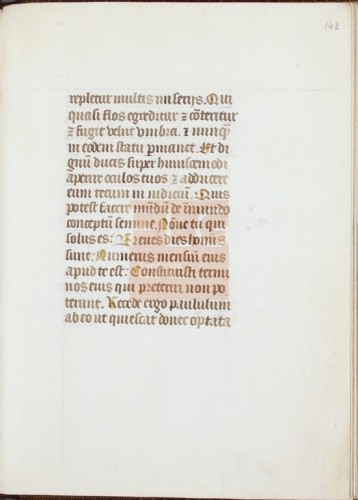 142
repletur multis miserijs. Qui
quasi flos egreditur ⁊ co̅teritur
⁊ fugit velut vmbra. ⁊ nunqͣ
in eodem statu p̲manet. Et di
gnu̅ ducis super huiuscemodi
aperire oculos tuos ⁊ adducere
eum tecum in iudiciu̅. Quis
potest facere mu̅du̅ de inmundo
conceptu̅ semine. No̅ne tu qui
solus es: Breues dies ho̅is
sunt: Numerus mensiu̅ eius
apud te est: Constituisti termi
nos eius qui preteriri non po
terunt. Recede ergo paululum
ab eo ut quiescat donec optata